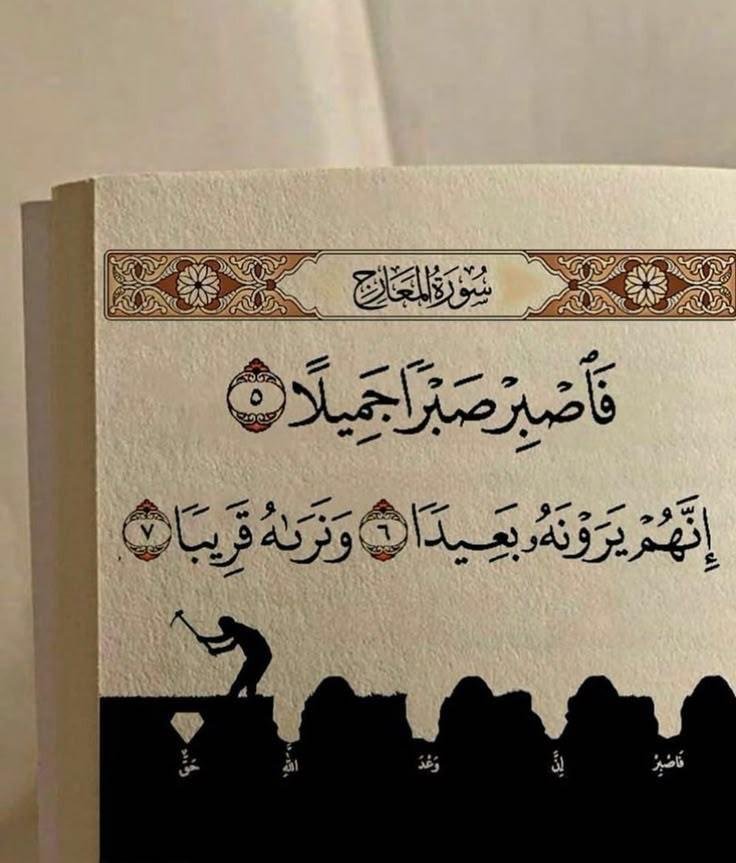 سُورَةُ المَعَارِجِ
فَٱصْبِرْ صَبْرًا جَمِيلًا ٥
إِنَّهُمْ يَرَوْنَهُۥ بَعِيدًا ٦ وَنَرَىٰهُ قَرِيبًا ٧
فَاصْبِرْ إِنَّ وَعْدَ اللَّهِ حَقٌّ